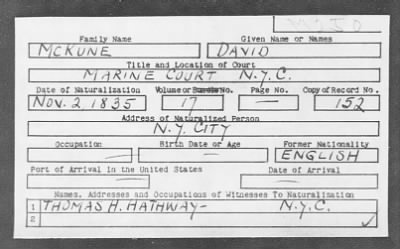 Family Name Given Name or Names
McKUNE DAVID
Title and Location of Court
MARINE COURT N.Y.C.
Date of Naturalization Volume or Bundle No. Page No. Copy of Record No.
NOV. 2 1835 17 — 152
Address of Naturalized Person
N.Y. CITY
Occupation Birth Date or Age Former Nationality
— — ENGLISH
Port of Arrival in the United States Date of Arrival
— —
Names, Addresses and Occupations of Witnesses To Naturalization
1 THOMAS H. HATHWAY- N.Y.C.
2 ✓